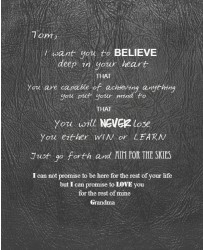 Tom,
I want you to BELIEVE
deep in your heart
THAT
You are capable of achieving anything
you put your mind to
THAT
You will NEVER lose
You either WIN or LEARN
Just go forth and AIM FOR THE SKIES
I can not promise to be here for the rest of your life
but I can promise to LOVE you
for the rest of mine
Grandma